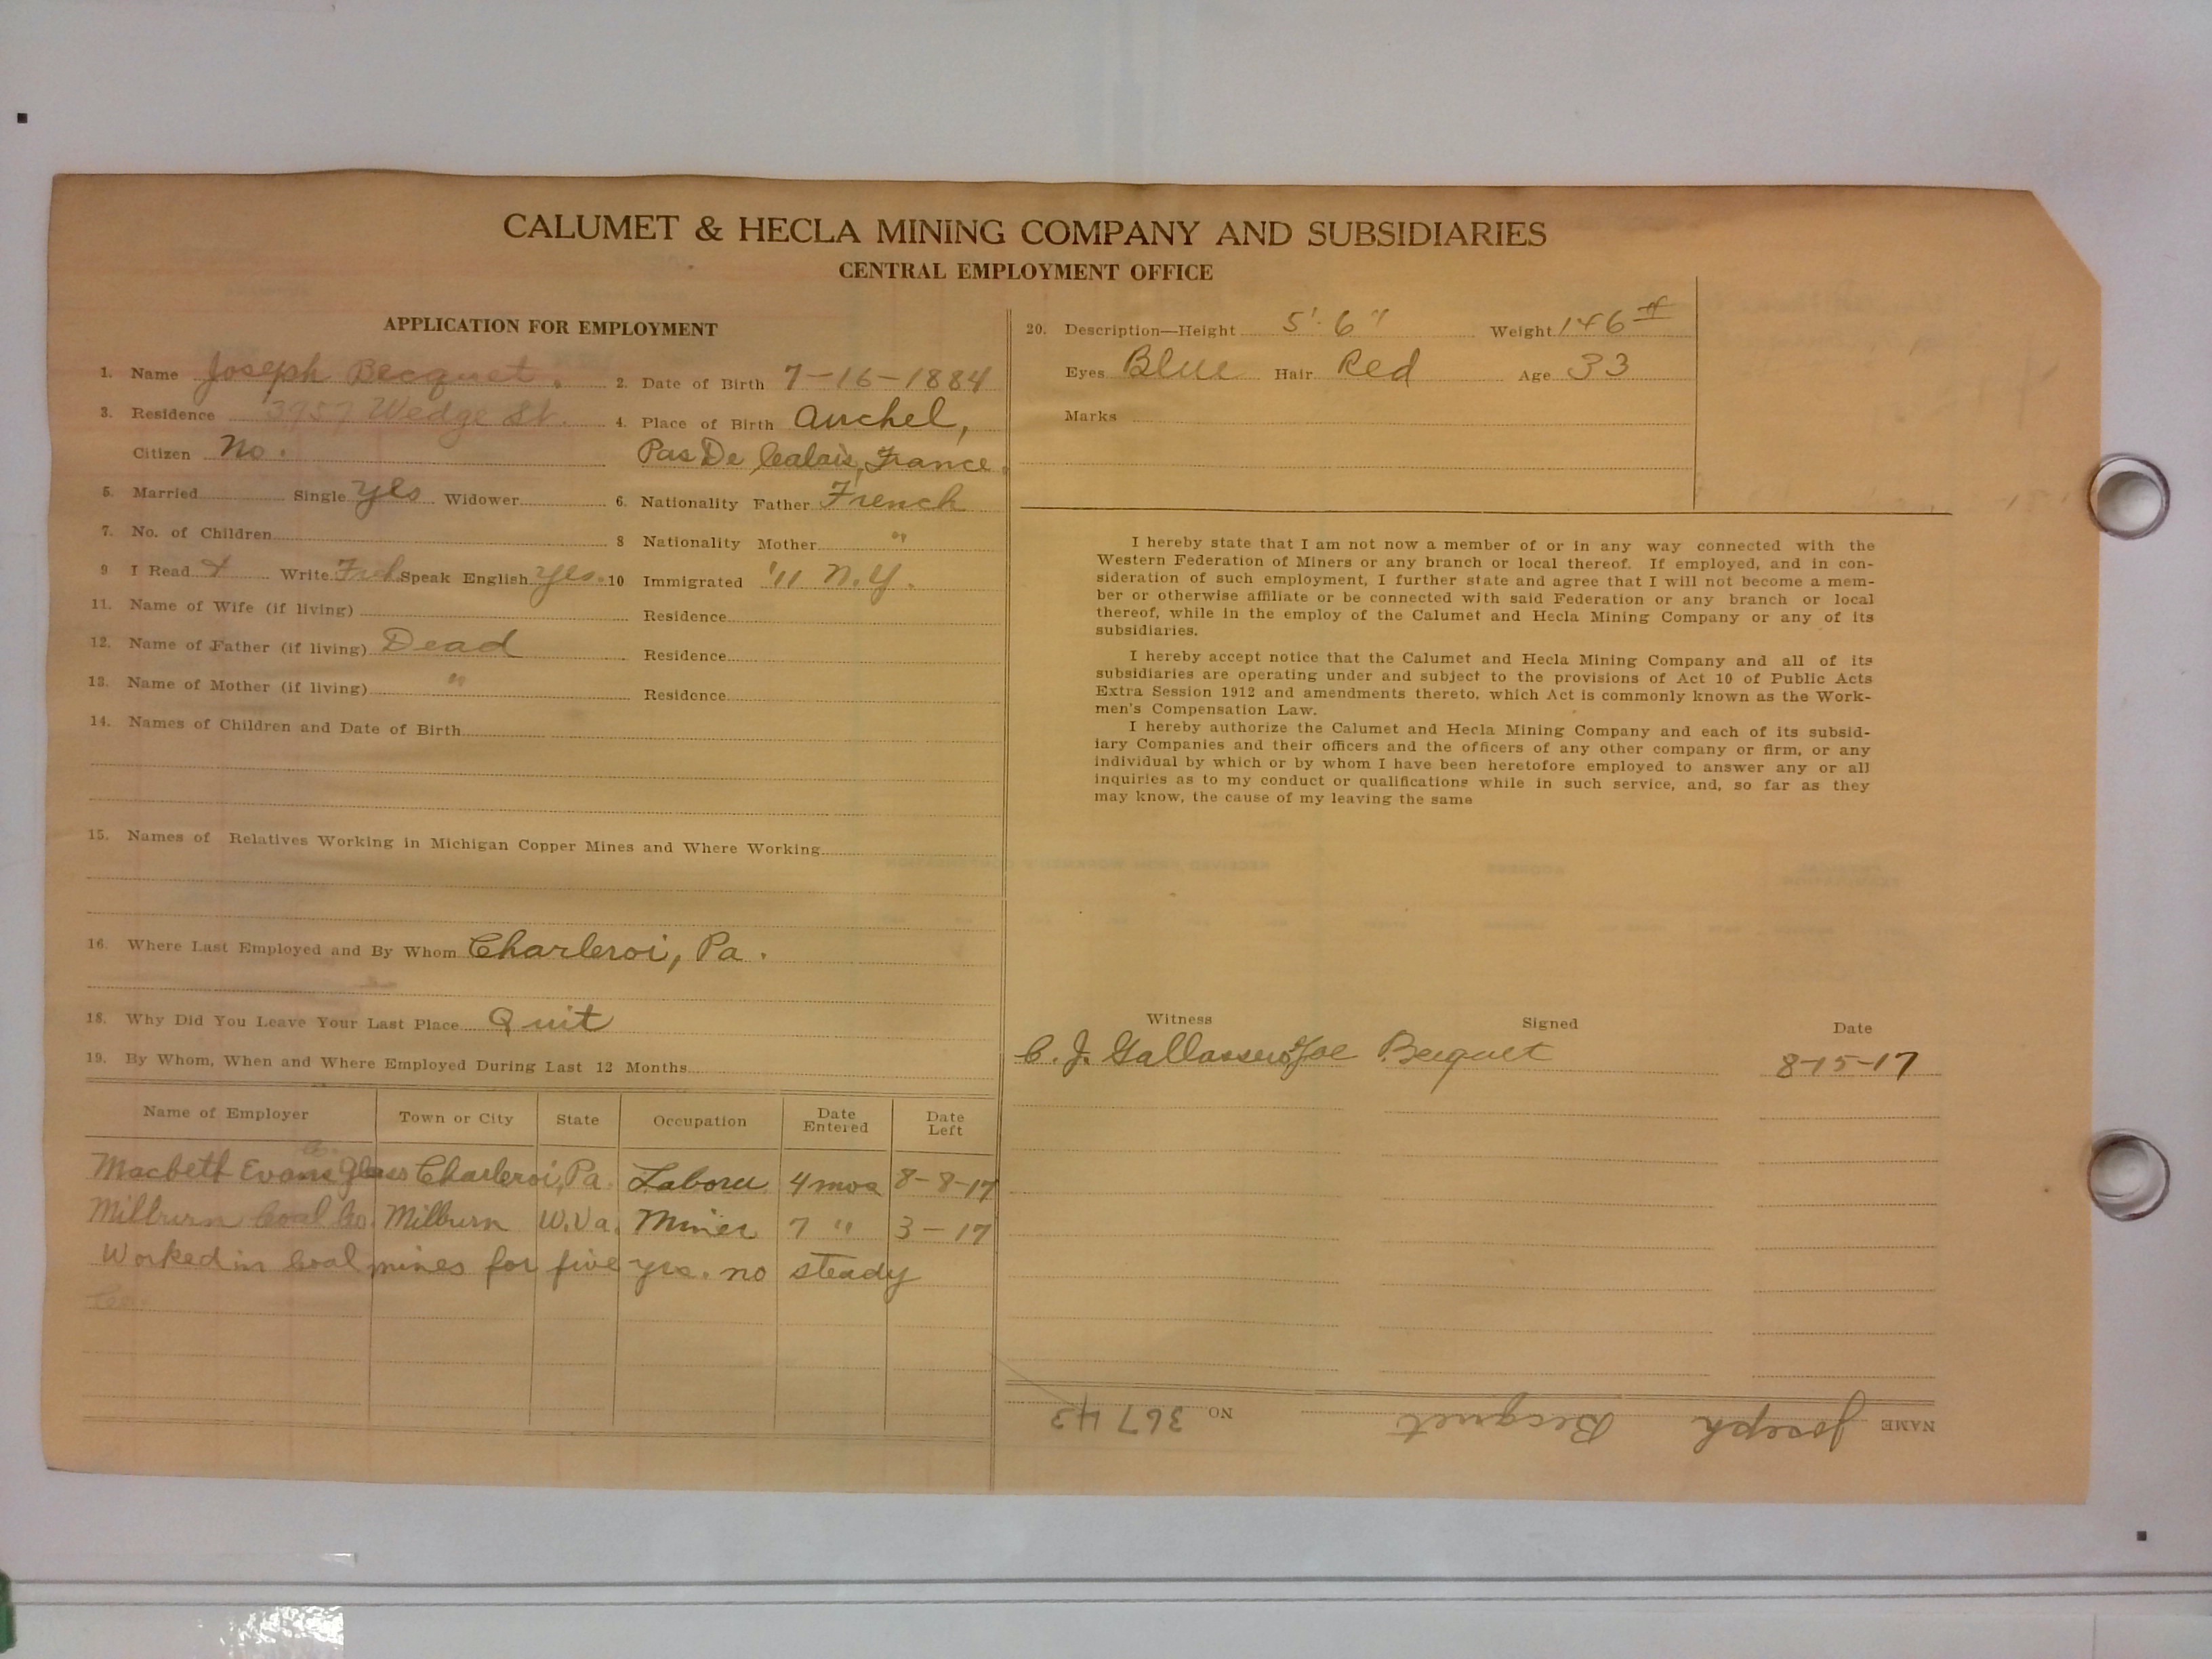 CALUMET & HECLA MINING COMPANY AND SUBSIDIARIES
CENTRAL EMPLOYMENT OFFICE
APPLICATION FOR EMPLOYMENT
1. Name Joseph Becquet. 2. Date of Birth 7-16-1884
3. Residence 3957 Wedge St. 4. Place of Birth Auchel,
Citizen No. Pas De Calais, France.
5. Married Single yes Widower 6. Nationality Father French
7. No. of Children 8 Nationality Mother "
9 I Read & Write Frch Speak English yes. 10 Immigrated '11 N.Y.
11. Name of Wife (if living) Residence
12. Name of Father (if living) Dead Residence
13. Name of Mother (if living) " Residence
14. Names of Children and Date of Birth
15. Names of Relatives Working in Michigan Copper Mines and Where Working
16. Where Last Employed and By Whom Charleroi, Pa.
18. Why Did You Leave Your Last Place Quit
19. By Whom, When and Where Employed During Last 12 Months
Name of Employer Town or City State Occupation Date Entered Date Left
Macbeth Evans Glass Co. Charleroi, Pa. Laborer 4 mos 8-8-17
Milburn Coal Co. Milburn W.Va. Miner 7 " 3-17
Worked in Coal mines for five yrs. no steady
Co.
20. Description—Height 5'-6" Weight 146 #
Eyes Blue Hair Red Age 33
Marks
I hereby state that I am not now a member of or in any way connected with the
Western Federation of Miners or any branch or local thereof. If employed, and in con-
sideration of such employment, I further state and agree that I will not become a mem-
ber or otherwise affiliate or be connected with said Federation or any branch or local
thereof, while in the employ of the Calumet and Hecla Mining Company or any of its
subsidiaries.
I hereby accept notice that the Calumet and Hecla Mining Company and all of its
subsidiaries are operating under and subject to the provisions of Act 10 of Public Acts
Extra Session 1912 and amendments thereto, which Act is commonly known as the Work-
men's Compensation Law.
I hereby authorize the Calumet and Hecla Mining Company and each of its subsid-
iary Companies and their officers and the officers of any other company or firm, or any
individual by which or by whom I have been heretofore employed to answer any or all
inquiries as to my conduct or qualifications while in such service, and, so far as they
may know, the cause of my leaving the same
Witness Signed Date
C. J. Joe Becquet 8-15-17
NAME Joseph Becquet NO 36743